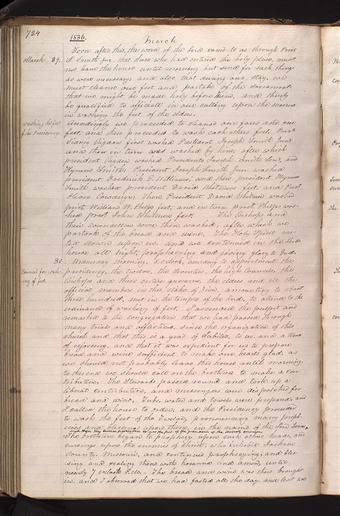 724
1836.
March
March 29.
Soon after this, the word of the Lord came to us through Prest
J. Smith jun. that those who had entered the holy place, must
not leave the house until morning but send for such things
as were necessary, and also that during our stay, we
must cleanse our feet and partake of the sacrament
that we might be made holy before him, and thereby
be qualified to officiate in our calling upon the morrow
in washing the feet of the elders.
washing of feet
of the Presidency
Accordingly we proceeded to cleanse our faces and our
feet, and then proceeded to wash each others feet. Prest
Sidney Rigdon first washed President Joseph Smith Jun's
and then in turn was washed by him, after which
president Rigdon washed Presidents Joseph Smith Sen, and
Hyrum Smith; President Joseph Smith jun. washed
president Frederick G. Williams, and then president Hyrum
Smith washed president David Whitmer's feet, and Prest
Oliver Cowdery's; then President David Whitmer washed
prest William W. Phelps feet, and in turn Prest Phelps wash-
ed prest John Whitmers feet. The Bishops and
their councillors were then washed, after which we
partook of the bread and wine. The Holy Spirit res-
ted down upon us, and we continued in the Lord's
house all night, prophesying and giving glory to God.
30.
Wednesday Morning, 8 o'clock, according to appointment the
presidency, the Twelve, the Seventies, the high Councils, the
Bishops and their entire quorums, the elders and all the
official members in this Stake of Zion, amounting to about
three hundred, met in the temple of the Lord, to attend to the
ordinance of washing of feet. I ascended the pulpit and
remarked to the congregation that we had passed through
many trials and afflictions, since the organization of this
church and that this is a year of Jubilee, to us and a time
of rejoicing, and that it was expedient for us to prepare
bread and wine sufficient to make our hearts glad, as
we should not probably leave this house until morning;
to this end we should call on the brethren to make a con-
tribution. The Stewards passed round and took up a
liberal contribution, and messengers were dispatched for
bread and wine. Tubs, water and towels were prepared, and
I called the house to order, and the Presidency proceeded
to wash the feet of the Twelve, pronouncing many prophe-
cies and blessings upon them, in the name of the Lord Jesus,
The brethren began to prophesy upon each others heads, and
cursings upon the enemies of Christ, who inhabit Jackson
County, Missouri, and continued prophesying and bles-
sing and sealing them with hosanna and amen, until
nearly 7 o'clock P.M. The bread and wine was then brought
in, and I observed that we had fasted all the day, and lest we